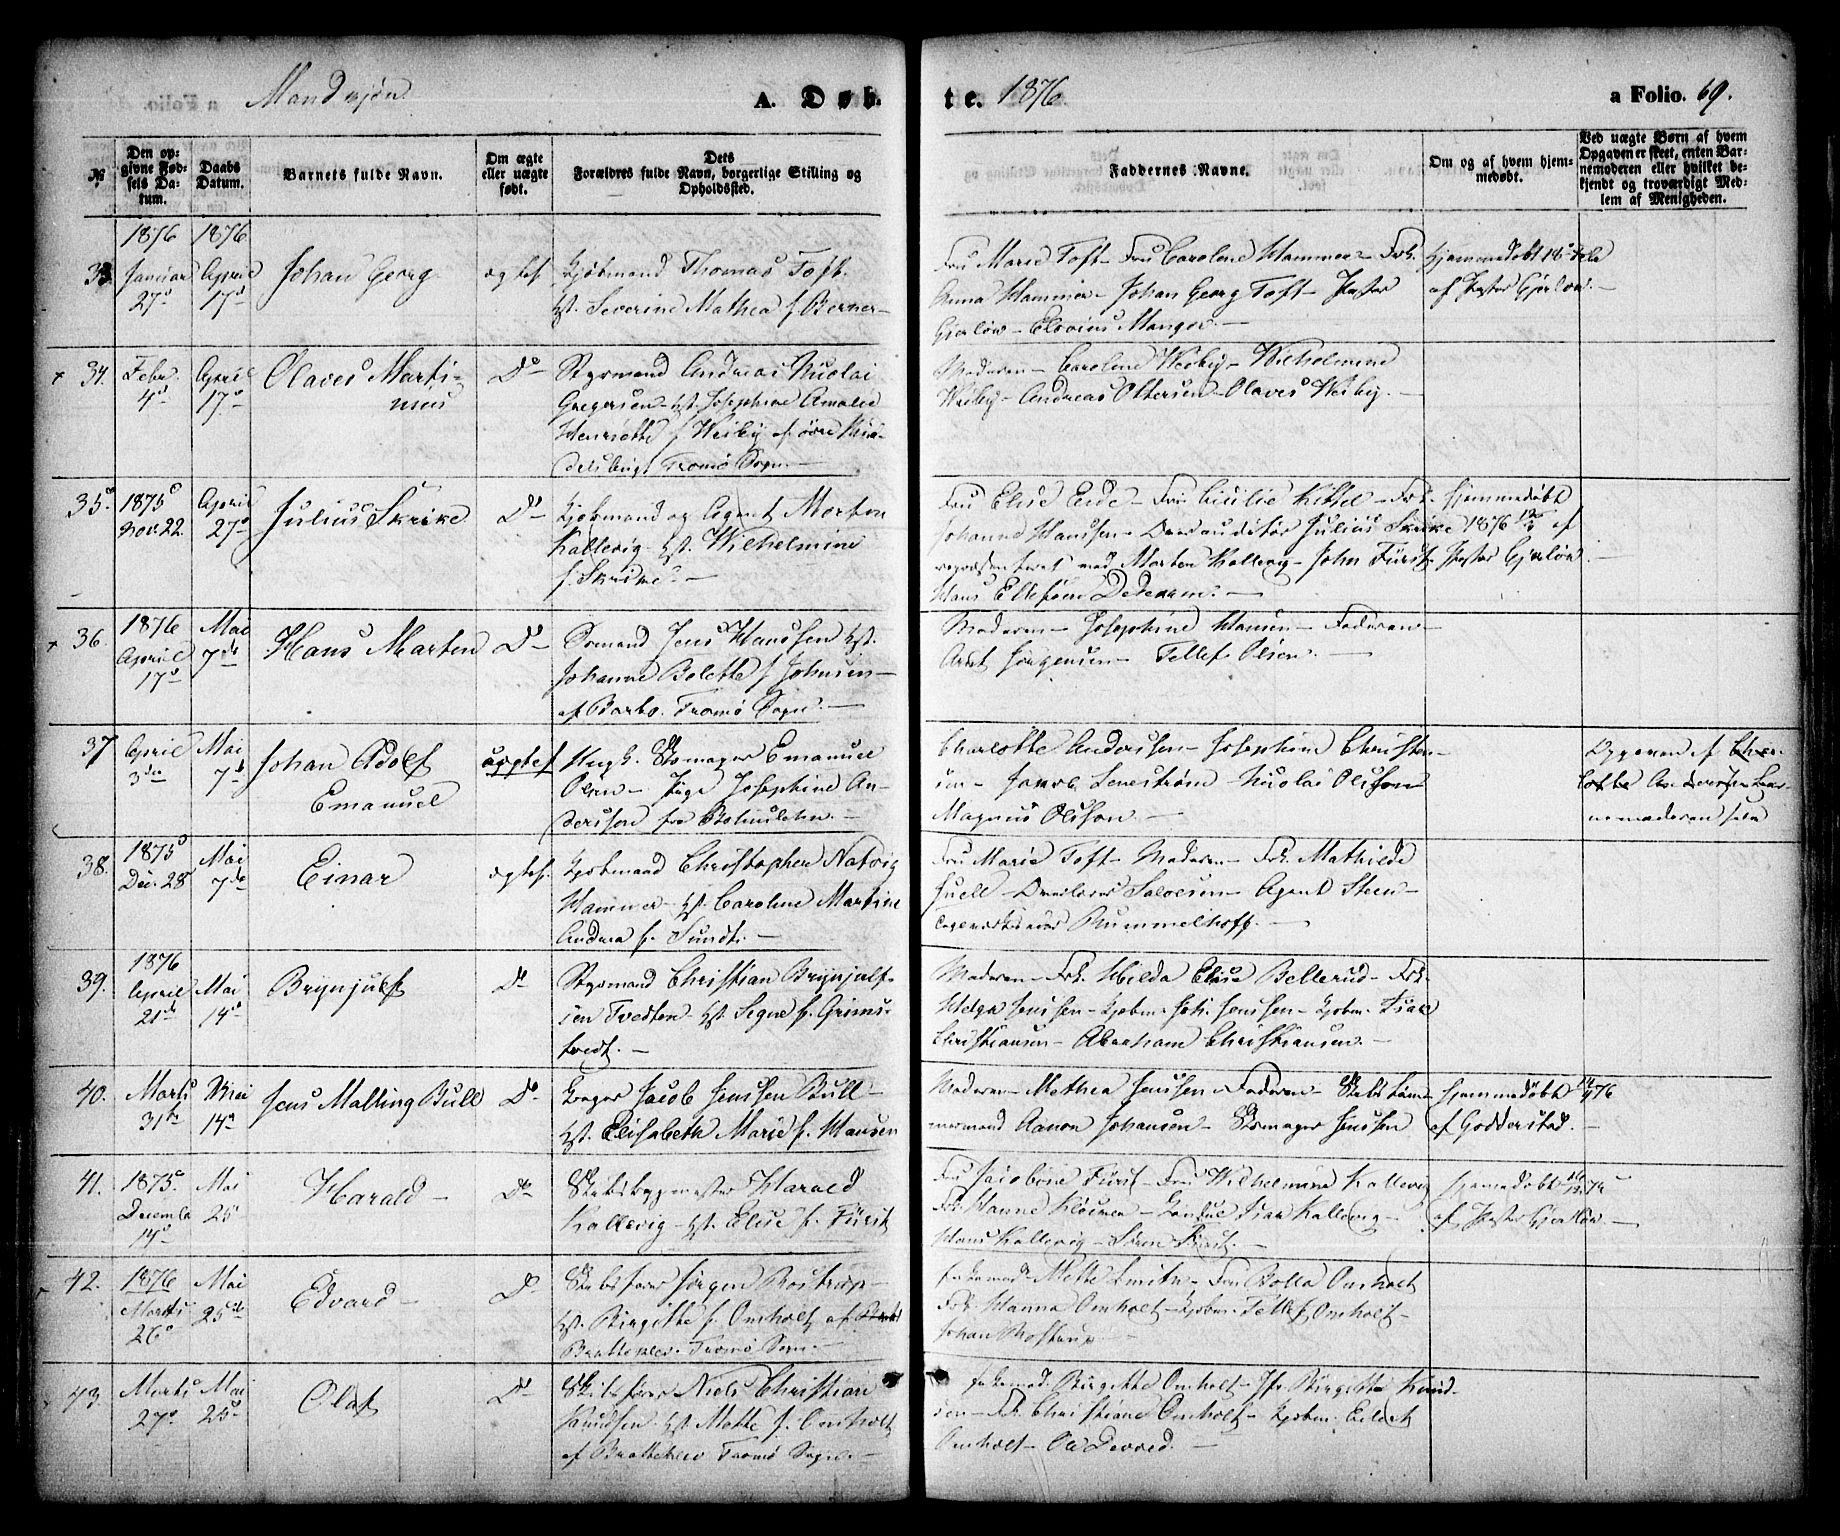 Mandkjøn
A. Døb-
te. 1876
a Folio. 69.
№
Den op-
givne Fød-
sels Da-
tum.
Daabs
Datum.
Barnets fulde Navn.
Om ægte
eller uægte
født.
Dets
Forældres fulde Navn, borgerlige Stilling og
Opholdssted.
Faddernes Navne.
Om og af hvem hjem-
medøbt.
Ved uægte Børn af hvem
Opgaven er skeet, enten Bar-
nemoderen eller hvilket be-
kjendt og troværdigt Med-
lem af Menigheden.
33.
1876
Januar
27
1876
April
17
Johan Georg
ægtef.
Kjøbmand Thomas Toft
Hst. Severine Mathea f. Berner
Fru Marie Toft - Fru Caroline Hammer - Frk.
Anna Hammer - Johan Georg Toft - Pastor
Gjerløw -
Hjemmedøbt
af Pastor Gjerløw.
34.
Febr.
4
April
17
Olaves Marti-
nius
Do
Styrmand Andreas Nicolai
Gregersen - Hst. Josephine Amalie
Henriette f. Weiby af
Tromø Sogn
Moderen - Caroline Weiby - Wilhelmine
Weiby - Andreas Ottersen - Olaves Weiby.
35.
1875
Nov. 22.
April
27
Julius Skrike
Do
Kjøbmand og Agent Morten
Kallevig Hst. Wilhelmine
f. Skrike
Fru Elise Eide - Fru Cicilie Kittel - Frk.
Johanne Hanssen - Julius Skrike
ved Morten Kallevig - John Fürst
Hans
Hjemmedøbt
1876 af
Pastor Gjerløw
36.
1876
April
17
Mai
7de
Hans Marten
Do
Sømand Jens Hanssen Hst.
Johanne Bolette f. Johnsen
af Barbo. Tromø Sogn.
Moderen - Josephine Hansen - Faderen
Arnt Jørgensen - Tellef Olsen.
37
April
3die
Mai
7de
Johan Adolf
Emanuel
uægtef.
Ungk. Skomager Emanuel
Olsen - Pige Josephine An-
dersson fra
Charlotte Andersen - Josephine Christen-
sen - Nicolai Olsson
Magnus Olsson.
Opgaven af Char-
lotte Andersen Bar-
nemoderen selv
38.
1875
Dec. 28
Mai
7de
Einar
ægtef.
Kjøbmand Christopher Natvig
Hammer - Hst. Caroline Martine
Andrea f. Sundt.
Fru Marie Toft - Moderen - Frk. Mathilde
Juell - Salvesen - Agent Steen -
Rummelhoff.
39.
1876
April
21de
Mai
14
Brynjulf
Do
Styrmand Christian Brynjulf-
sen Tvedten - Hst. Signe f. Grims-
tvedt.
Moderen - Frk. Hilda Elise Bellerud - Frk.
Helga Jenssen - Kjøbm. Joh. Jenssen - Kjøbm. Isak
Christiansen - Abraham Christiansen.
40.
Marts
31te
Mai
14
Jens Malling Bull
Do
Jacob Jenssen Bull -
Hst. Elisabeth Marie f. Hansen
Moderen - Mathea Jenssen - Faderen - Skibstøm-
mermand Aanon Johansen - Skomager Jenssen
Hjemmedøbt
af Godderstad.
41.
1875.
Decembe
14
Mai
25
Harald
Do
Skibsbygmester Harald
Kallevig - Hst. Elise f. Fürst
Fru Jacobine Fürst - Fru Wilhelmine Kallevig
Frk. Hanne - Isak Kallevig -
Hans Kallevig - Søren Fürst.
Hjemmedøbt
af Pastor Gjerløw.
42.
1876
Marts
26
Mai
25de
Edvard
Do
Skibsfører Jørgen Bostrup
Hst. Birgitte f. Omholt af
Brattekler. Tromø Sogn.
Mette Smith - Fru Bolla Omholt
Frk. Hanna Omholt - Kjøbm. Tellef Omholt -
Johan Bostrup
43.
Marts
27
Mai
25
Olaf
Do
Skibsfører Niels Christian
Knudsen - Hst. Mette f. Omholt
af Brattekler Tromø Sogn.
Birgitte Omholt - Jfr. Birgitte Knud-
sen - Frk. Christiane Omholt - Kjøbm. Eilert
Omholt -